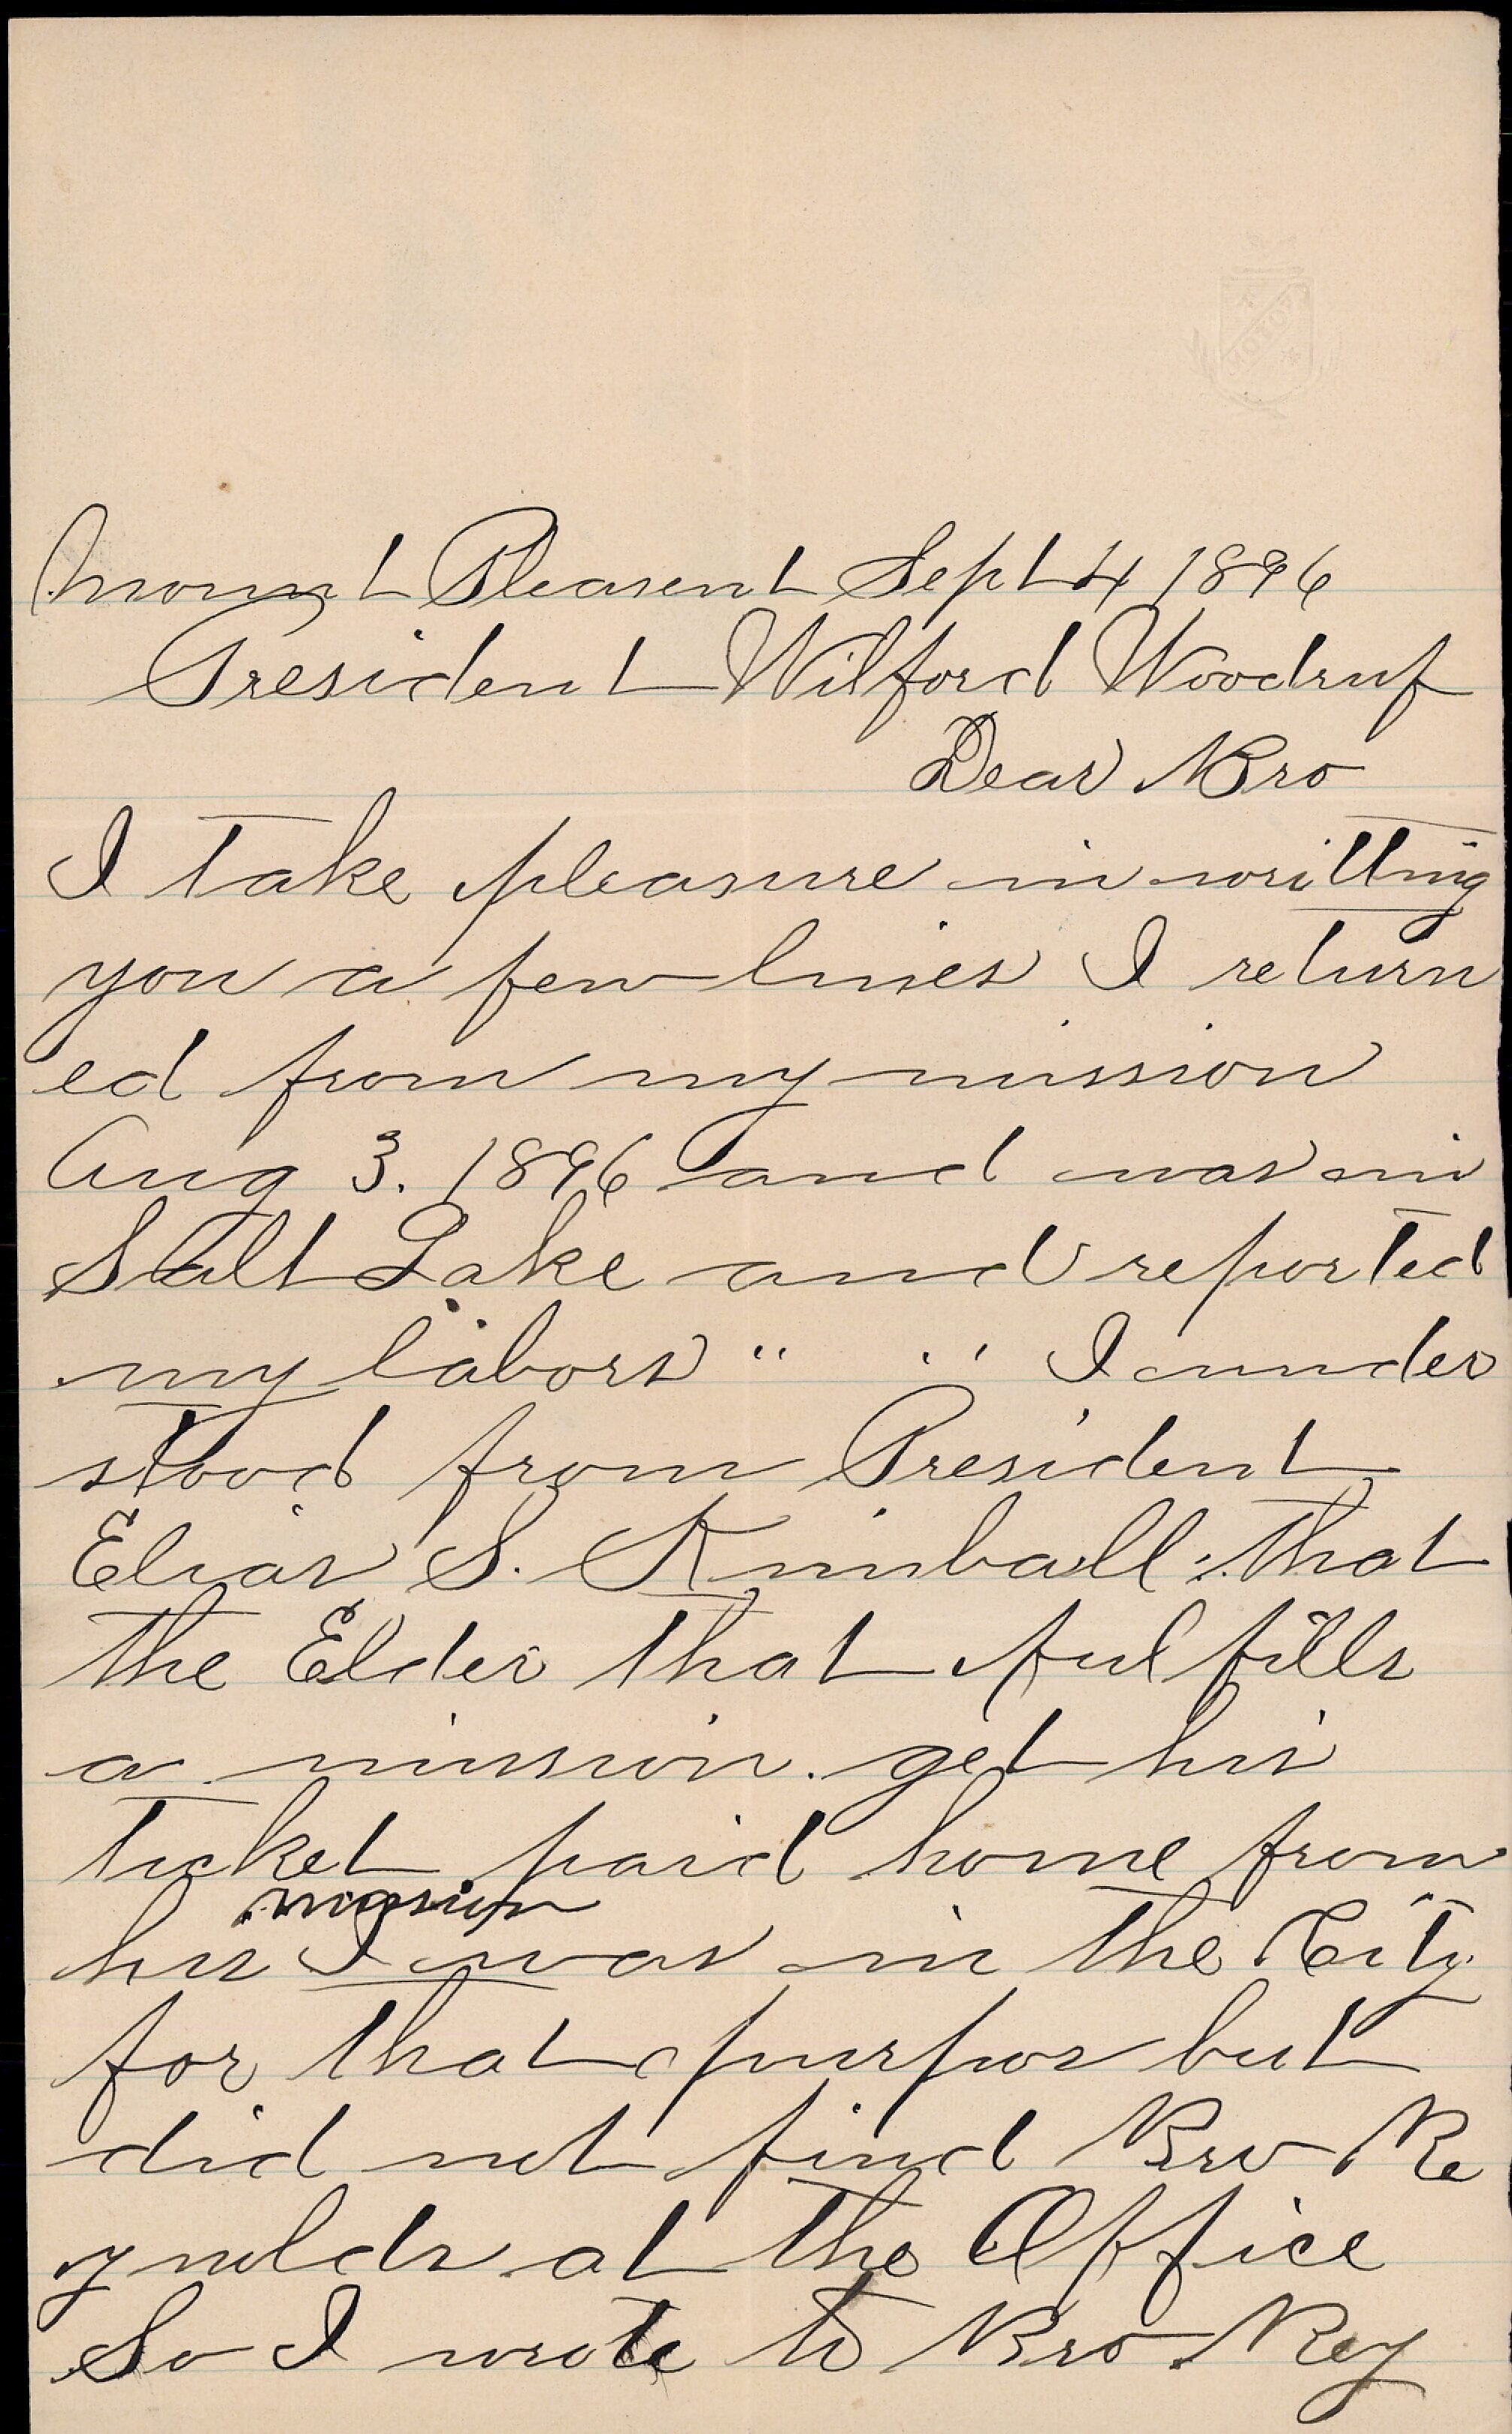 Mount Pleasent Sept 4 1896
President Wilford Woodruf
Dear Bro
I take pleasure in writting
you a few lines I return
ed from my mission
Aug 3. 1896 and was in
Salt Lake and reported
my labors " " I under
stood from President
Elias S. Kimball that
the Elder that fulfills
a mission. get his
ticket paid home from
mission
his I was in the City
for that purpos but
did not find Bro Re
ynolds at the Office
So I wrote to Bro. Rey